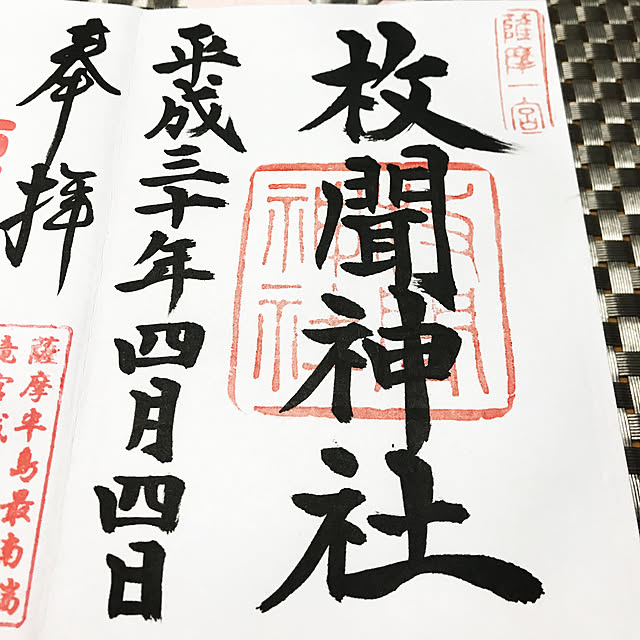 薩摩一宮
枚聞神社
枚聞
神社
平成三十年四月四日
奉拝
薩摩半島最南端
竜宮